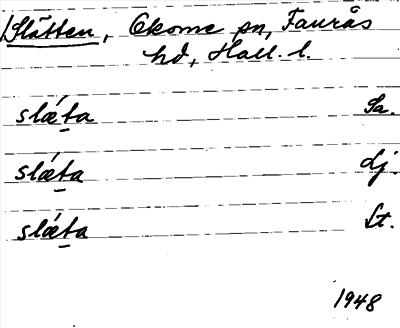 Slätten, Okome sn, Faurås
hd, Hall. l.
slǽta Sa.
slǽta dj.
slǽta Lt.
1948